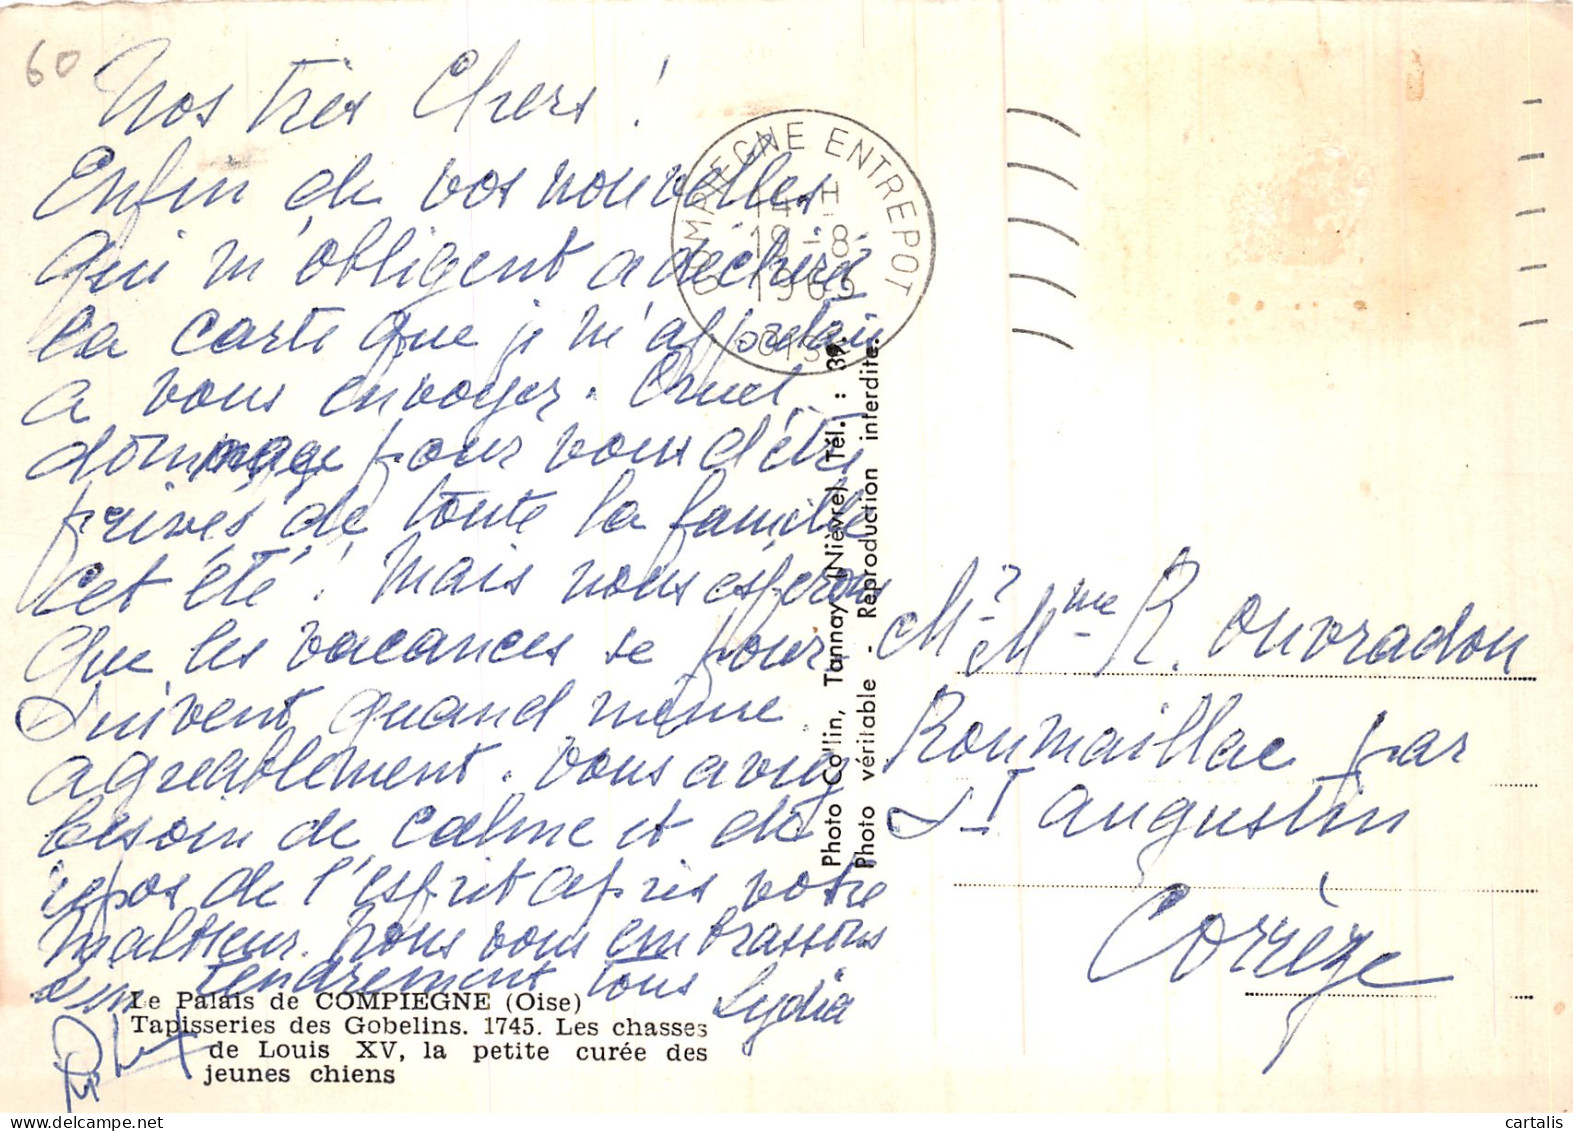 60
Nos Très Chers !
Enfin de vos nouvelles
qui m'obligent a déchirer
la carte que je m'apprêtais
a vous envoyer. Quel
dommage pour vous d'être
privés de toute la famille
cet été ! Mais nous espérons
que les vacances se pour-
suivent quand même
agréablement. Vous aviez
besoin de calme et de
repos de l'esprit après votre
malheur. Nous vous embrassons
bien tendrement tous
Lydia
COMPIEGNE ENTREPOT
14 H
19 - 8
1965
OISE
Photo Collin, Tannay (Nièvre) Tél. : 39.
Photo véritable - Reproduction interdite.
Mr & Mme R. Ouvradou
Roumaillac par
St Augustin
Corrèze
Le Palais de COMPIEGNE (Oise)
Tapisseries des Gobelins. 1745. Les chasses
de Louis XV, la petite curée des
jeunes chiens
cartalis